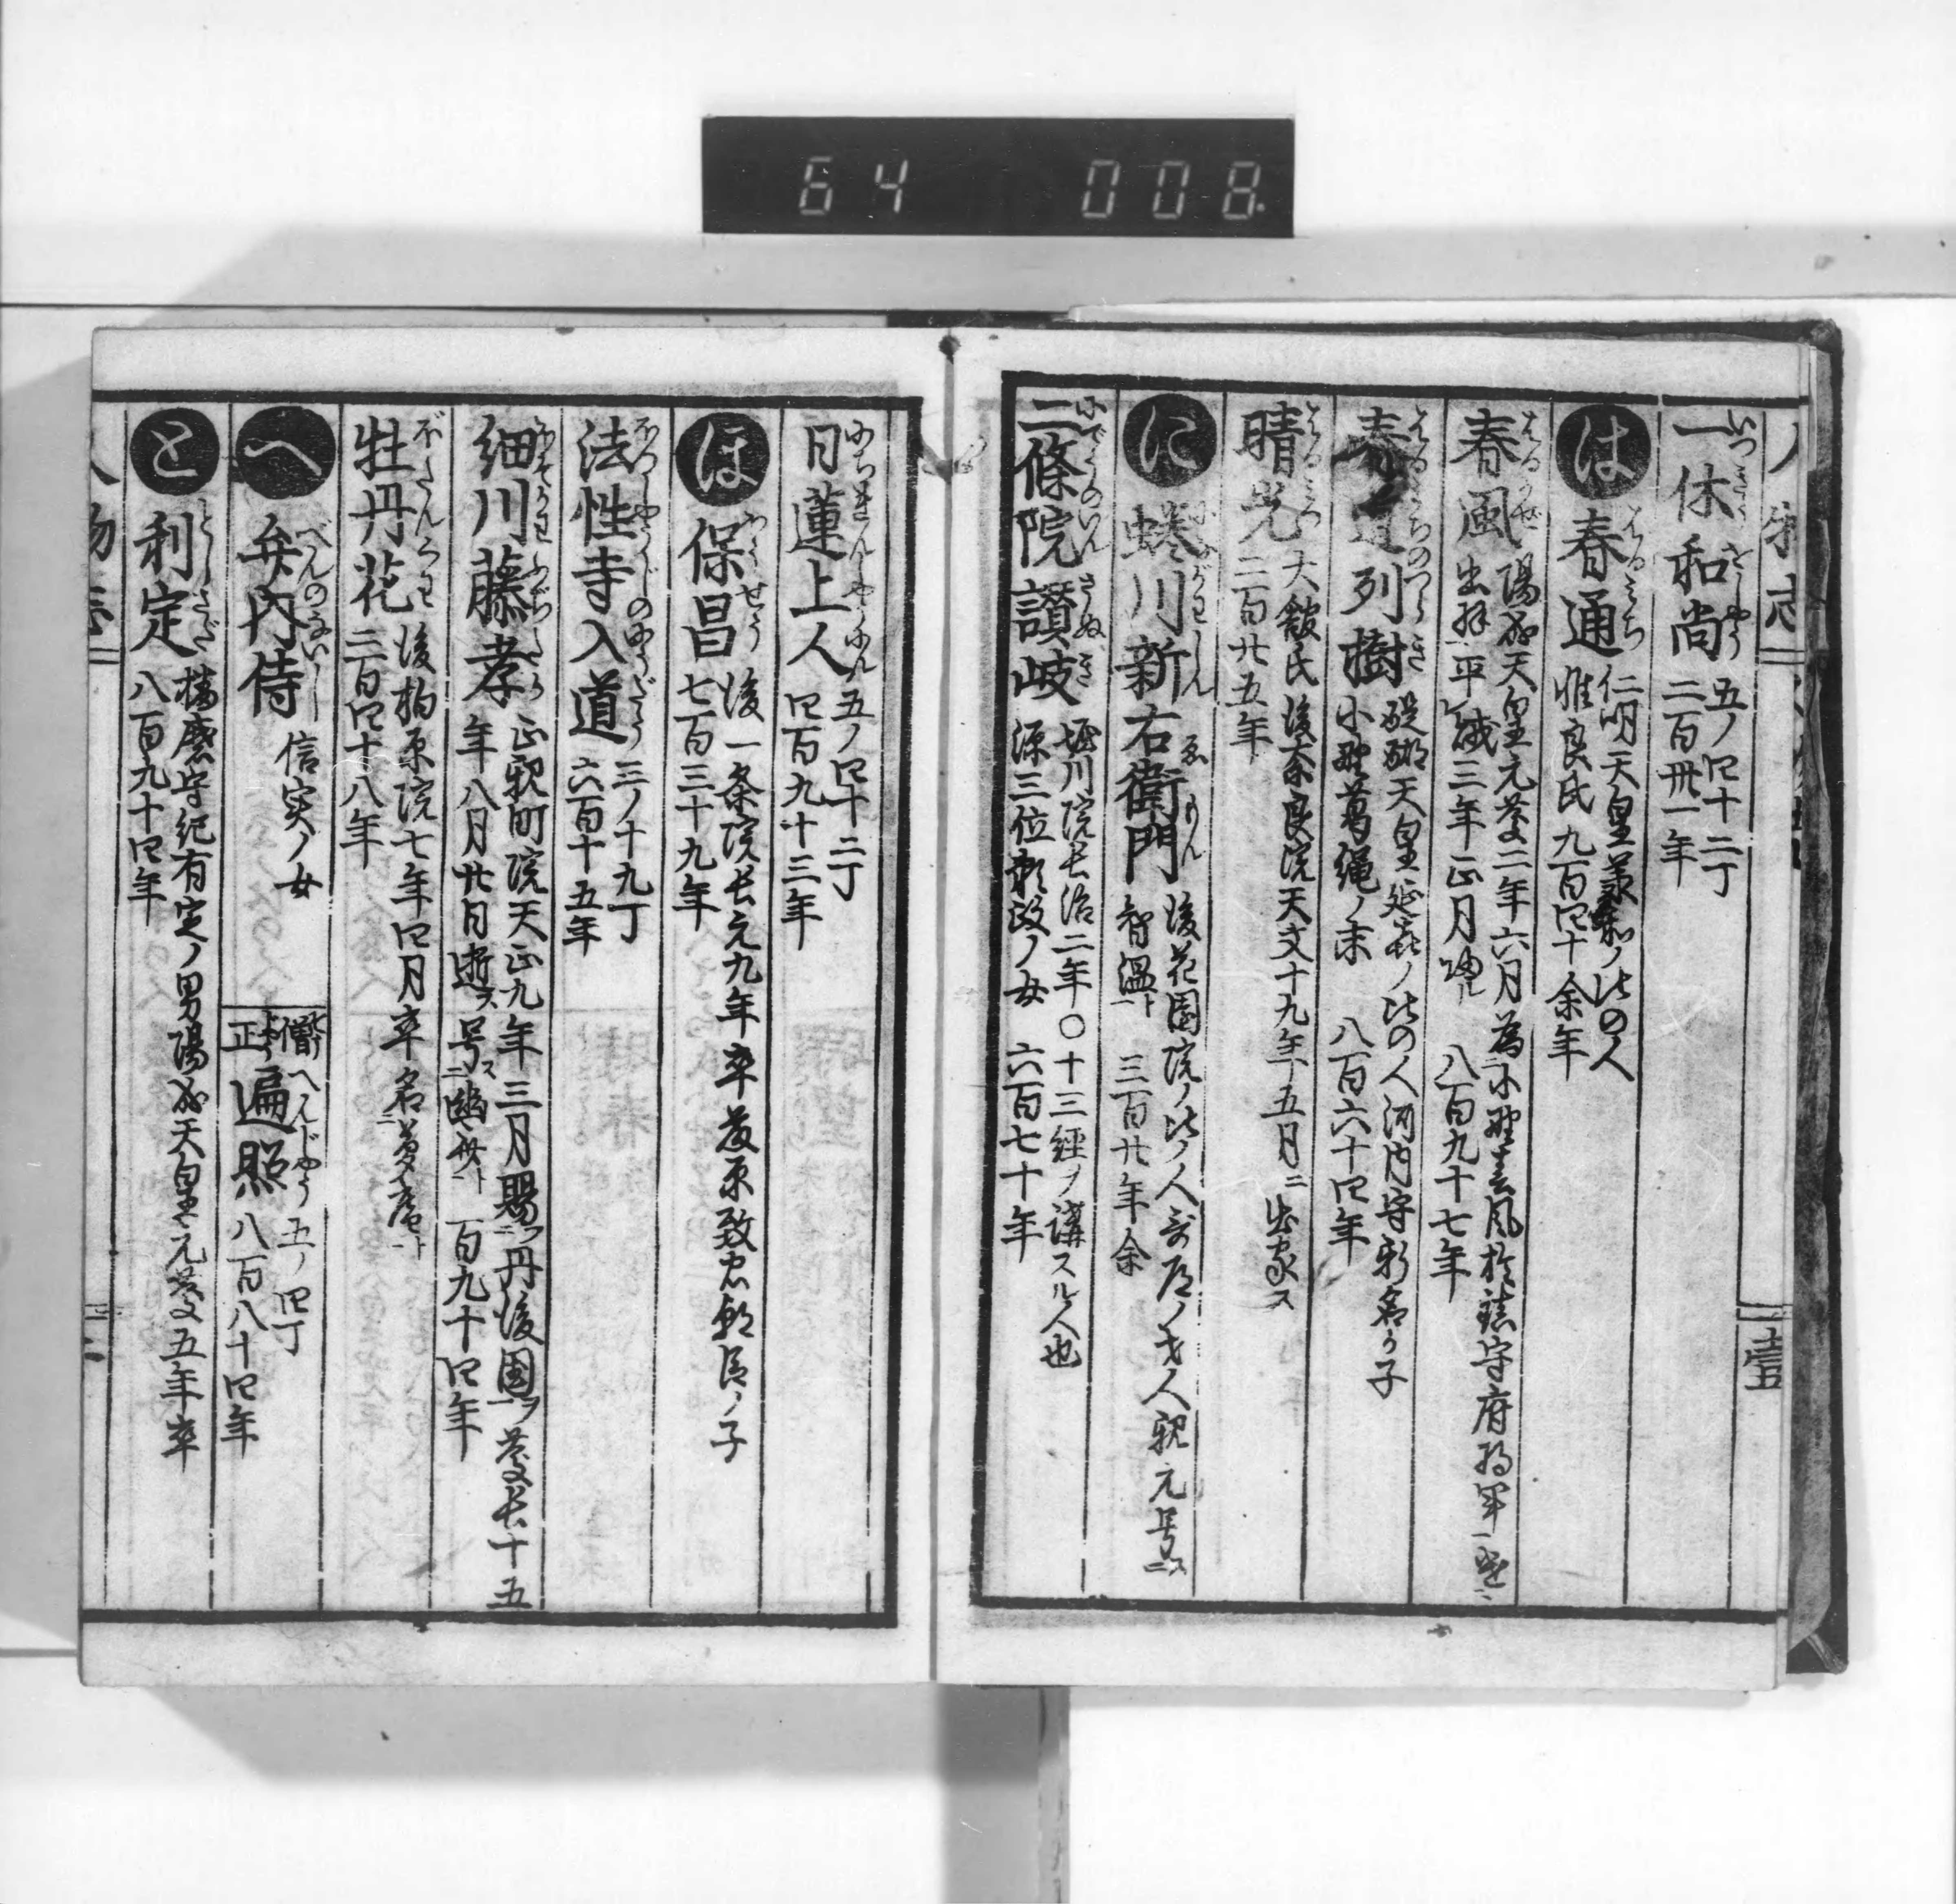 64 008
一休和尚 五ノ四十二丁
二百卅一年
は
春通 仁明天皇承和ノ比の人
惟良氏 九百四十余年
春風 陽成天皇元慶二年六月 為小野春風於鎮守府将軍
出羽平賊三年正月 八百九十七年
春道列樹 醍醐天皇延喜ノ比の人河内守新名ヵ子
小野葛縄ノ末 八百六十四年
晴光 大舘氏後奈良院天文十九年五月ニ出家ス
二百廿五年
に
蜷川新右衛門 後花園院ノ比ノ人寄居ノ才人親元号ス
智温ト 三百廿年余
二條院讃岐 堀川院長治二年〇十三経ヲ講スル人也
源三位頼政ノ女 六百七十年
日蓮上人 五ノ四十二丁
四百九十三年
ほ
保昌 後一条院長元九年卒藤原致忠朝臣ノ子
七百三十九年
法性寺入道 三ノ十九丁
六百十五年
細川藤孝 正親町院天正九年三月賜フ丹後国ヲ慶長十五
年八月廿日逝ス号ス幽斎ト 百九十四年
牡丹花 後柏原院七年四月卒名夢庵ト
二百四十八年
へ
弁内侍 信実ノ女
僧正遍照 五ノ四丁
八百八十四年
と
利定 播磨守紀有定ノ男陽成天皇元慶五年卒
八百九十四年